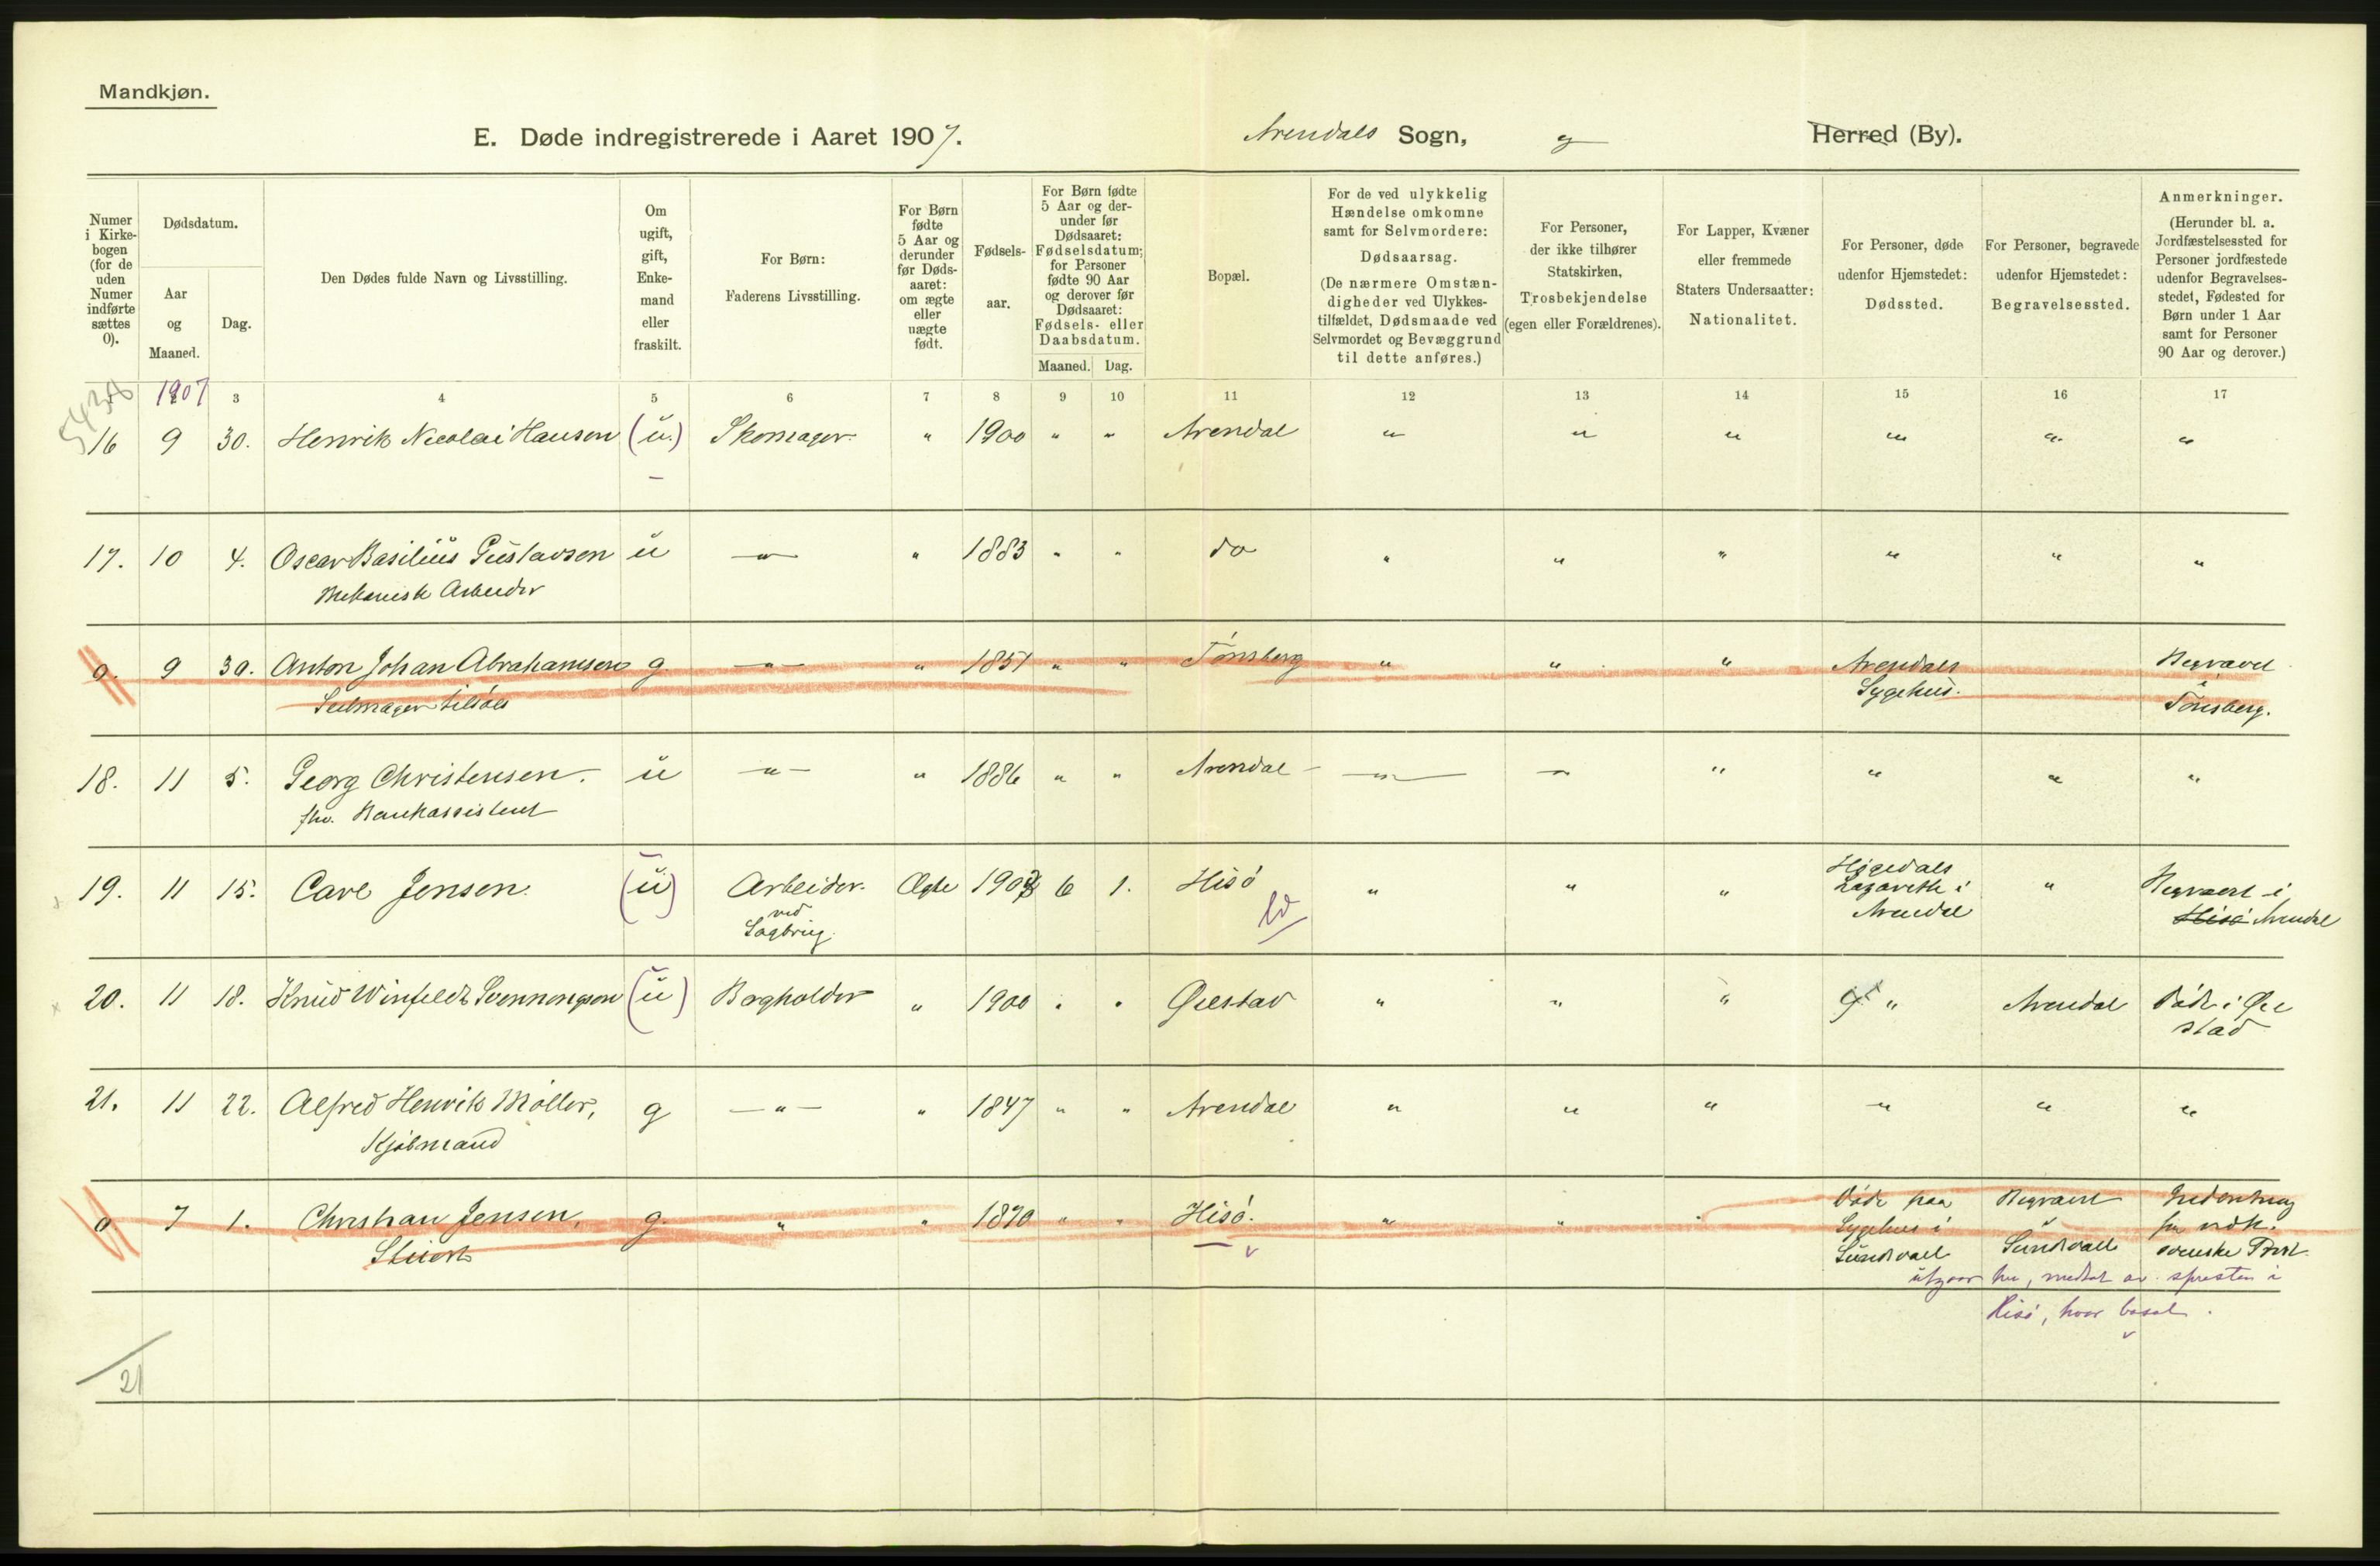 Mandkjøn.
E. Døde indregistrerede i Aaret 1907. Arendals Sogn, og Herred (By).
Numer i Kirkebogen (for de uden Numer indførte sættes 0).
Dødsdatum.
Aar og Maaned.
Dag.
Den Dødes fulde Navn og Livsstilling.
Om ugift, gift, Enkemand eller fraskilt.
For Børn: Faderens Livsstilling.
For Børn fødte 5 Aar og derunder før Dødsaaret: om ægte eller uægte født.
Fødselsaar.
For Børn fødte 5 Aar og derunder før Dødsaaret: Fødselsdatum; for Personer fødte 90 Aar og derover før Dødsaaret: Fødsels- eller Daabsdatum.
Maaned. Dag.
Bopæl.
For de ved ulykkelig Hændelse omkomne samt for Selvmordere: Dødsaarsag. (De nærmere Omstændigheder ved Ulykkestilfældet, Dødsmaade ved Selvmordet og Bevæggrund til dette anføres.)
For Personer, der ikke tilhører Statskirken, Trosbekjendelse (egen eller Forældrenes).
For Lapper, Kvæner eller fremmede Staters Undersaatter: Nationalitet.
For Personer, døde udenfor Hjemstedet: Dødssted.
For Personer, begravede udenfor Hjemstedet: Begravelsessted.
Anmerkninger. (Herunder bl. a. Jordfæstelsessted for Personer jordfæstede udenfor Begravelsesstedet, Fødested for Børn under 1 Aar samt for Personer 90 Aar og derover.)
1907 3 4 5 6 7 8 9 10 11 12 13 14 15 16 17
16 9 30. Henrik Nicolai Hansen (u.) Skomager. " 1900 " " Arendal " " " " " "
17. 10 4. Oscar Basilius Gustavsen u — " — " 1883 " " do " " " " " "
Mekanisk Arbeider
0. 9 30. Anton Johan Abrahamsen g — " — " 1851 " " Tønsberg " " " Arendals Sygehus. Begravet i Tønsberg.
Seilmager tilsøls
18. 11 5. Georg Christensen. u — " — " 1886 " " Arendal — " — " " " " "
fhv. Bankassistent
19. 11 15. Carl Jensen. (u) Arbeider ved Sagbrug. Ægte 190 6 1. Hisø " " " Lazareth i Arendal " Begravet i Hisø Arendal
20. 11 18. Knud Winfeldt Svennungsen (u) Bogholder " 1900 " " Øiestad " " " " Arendal Døde i Øiestad
21. 11 22. Alfred Henrik Møller, g — " — " 1847 " " Arendal " " " " " "
Kjøbmand
0 7 1. Christian Jensen, g. " " 1870 " " Hisø. " " " Døde paa Sygehus i Sundsvall Begravet i Sundsvall Indberetning fra vedk. svenske Prest.
Stuert
utgaar her, medtat av spresten i
Hisø, hvor bosat.
21